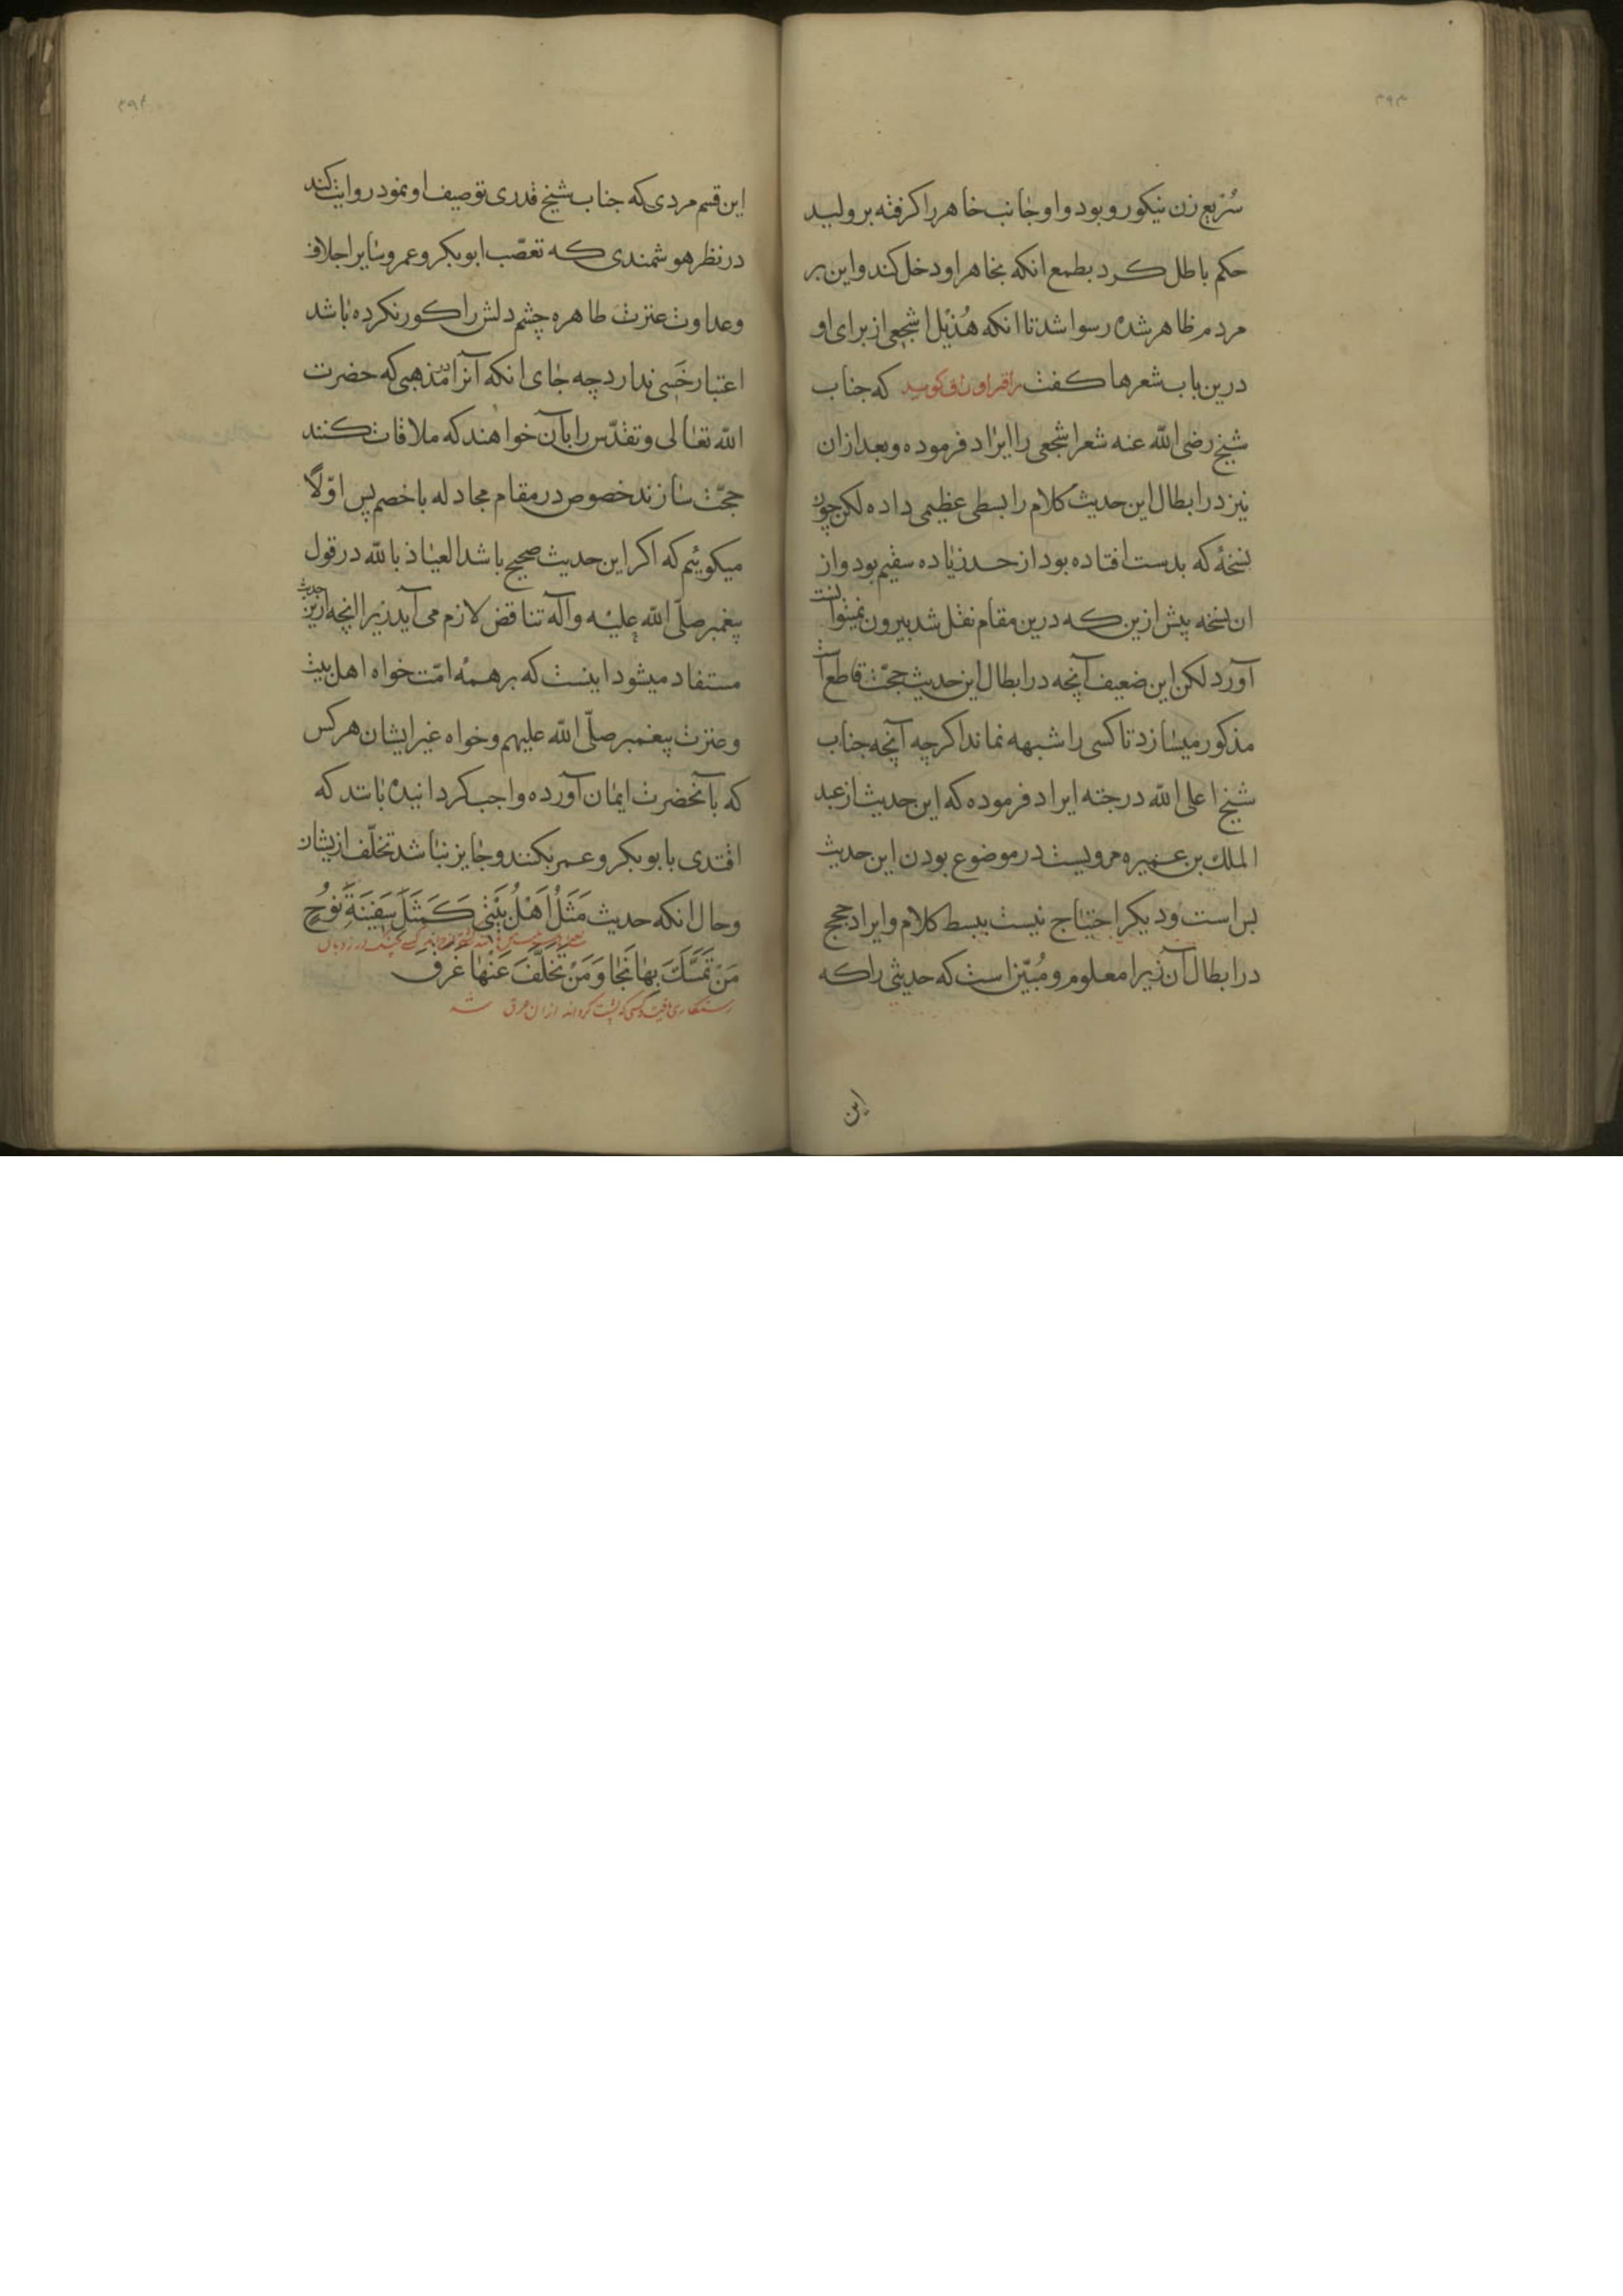 ۳۹۳
سُرَیع زن نیکو رو بود و او جانب خاهر را کرفته بر ولید
حکم باطل کرد بطمع انکه بخاهر او دخل کند و این بر
مردم ظاهر شده رسوا شد تا انکه هُذَیل اشجعی از برای او
درین باب شعرها کفت که جناب
شیخ رضی الله عنه شعر اشجعی را ایراد فرموده و بعد ازان
نیز در ابطال این حدیث کلام را بسطی عظیمی داده لکن چون
نسخۀ که بدست افتاده بود از حد زیاده سقیم بود و از
ان نسخه پیش ازین که درین مقام نقل شد بیرون نمیتوانست
آورد لکن این ضعیف آنچه در ابطال این حدیث حجّت قاطع است
مذکور میسازد تا کسی را شبهه نماند اکرچه آنچه جناب
شیخ اعلی الله درجته ایراد فرموده که این حدیث از عبد
الملك بن عمیره مرویست در موضوع بودن این حدیث
بس است و دیکر احتیاج نیست ببسط کلام و ایراد حجج
در ابطال آن زیرا معلوم و مُبیّن است که حدیثی را که
این
۳۹۴
این قسم مردی که جناب شیخ قدری توصیف او نمود روایت کند
در نظر هوشمندی که تعصّب ابوبکر و عمر و سایر اجلاف
و عداوت عترت طاهره چشم دلش را کور نکرده باشد
اعتبار خَسی ندارد چه جای انکه آنرا در مذهبی که حضرت
الله تعالی و تقدّس را بآن خواهند که ملاقات کنند
حجّت سازند خصوص در مقام مجادله با خصم پس اوّلاً
میکوئیم که اکر این حدیث صحیح باشد العیاذ بالله در قول
پیغمبر صلّی الله علیه و آله تناقض لازم می آید زیرا انچه ازین حدیث
مستفاد میشود اینست که بر همۀ امّت خواه اهل بیت
و عترت پیغمبر صلّی الله علیهم و خواه غیر ایشان هر کس
که بآنحضرت ایمان آورده واجب کردانیده باشد که
اقتدی بابوبکر و عمر بکنند و جایز نباشد تخلّف ازیشان
و حال انکه حدیث مَثَلُ اَهْلُ بَیْتی کَمَثَلِ سَفینَةِ نُوحٍ
مَنْ تَمَسَّكَ بِهَا نَجَا وَ مَنْ تَخَلَّفَ عَنْهَا غَرَقَ
رستکاری یافت و کسی که پشت کرداند ازان غرق شد